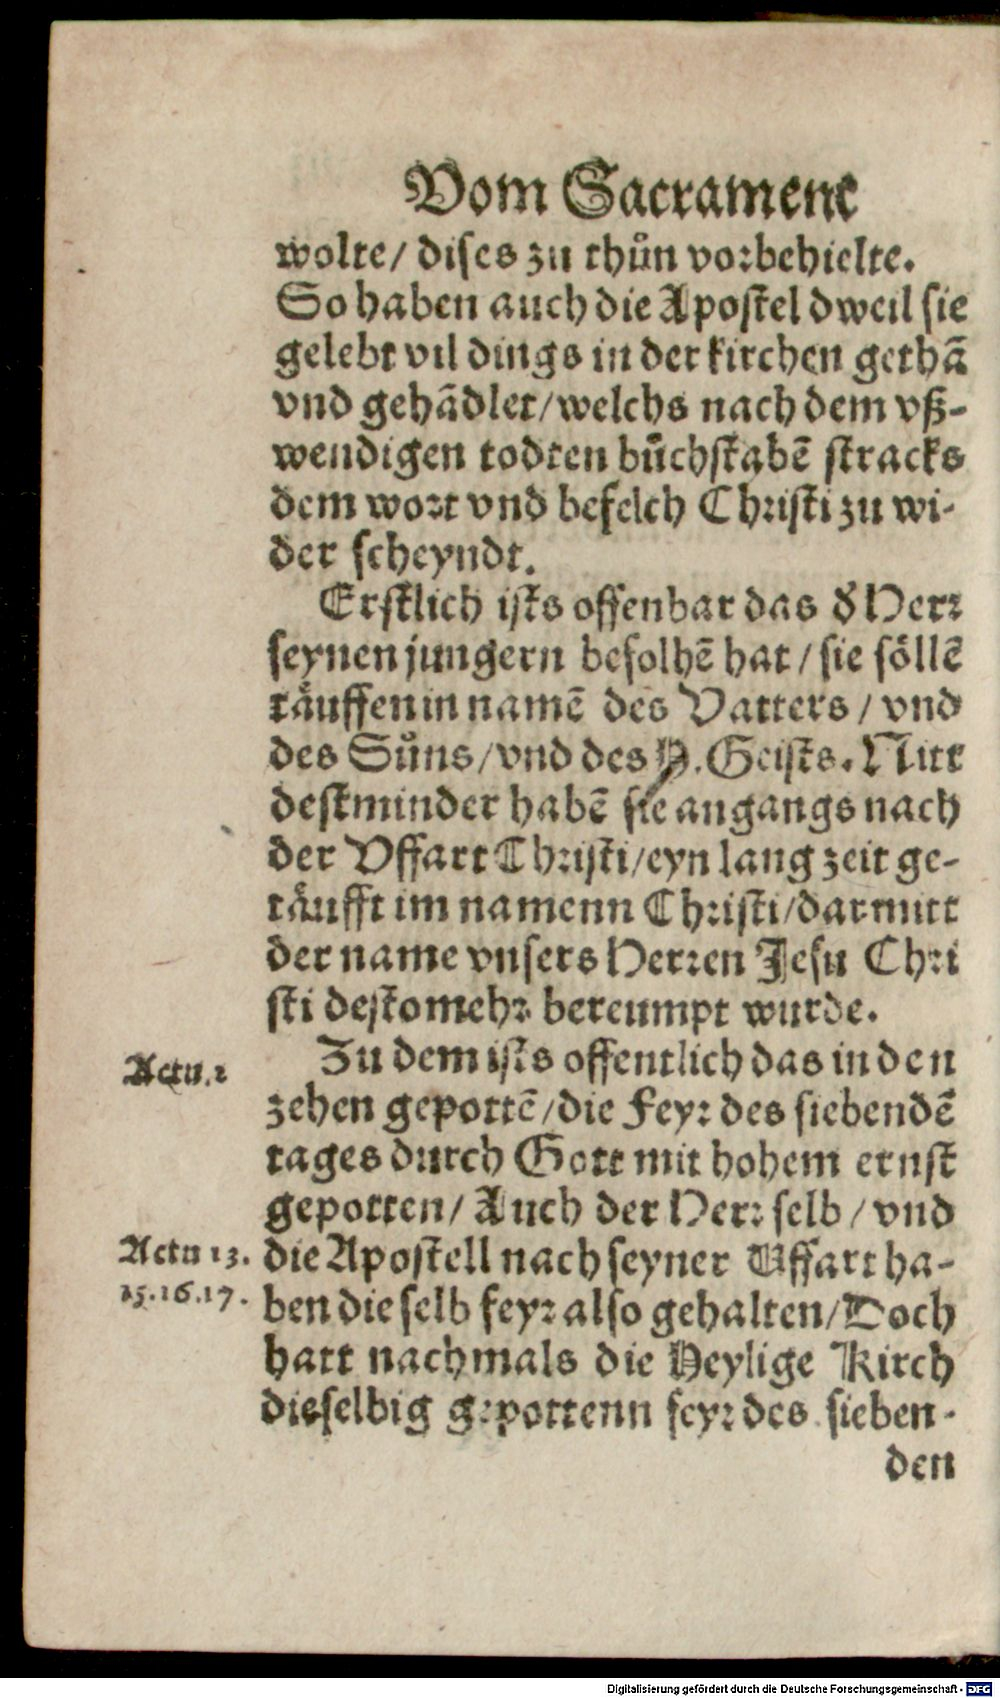 Vom Sacrament
wolte/ dises zu thůn vorbehielte.
So haben auch die Apostel dweil sie
gelebt vil dings in der kirchen gethã
vnd gehãdlet/welchs nach dem vß-
wendigen todten bůchstabẽ stracks
dem wort vnd befelch Christi zu wi-
der scheyndt.
Erstlich ists offenbar das d̕ Herr
seynen jungern befolhẽ hat / sie söllẽ
täuffen in namẽ des Vatters / vnd
des Sůns/vnd des H. Geists. Nitt
destminder habẽ sie angangs nach
der Vffart Christi/eyn lang zeit ge-
täufft im namenn Christi/darmitt
der name vnsers Herren Jesu Chri
sti destomehr bereumpt wurde.
Actu.2
Zu dem ists offentlich das in den
zehen gepottẽ/die Feyr des siebendẽ
tages durch Gott mit hohem ernst
gepotten/ Auch der Herr selb / vnd
Actu 13.
15.16.17.
die Apostell nach seyner Uffart ha-
ben die selb feyr also gehalten/Doch
hatt nachmals die Heylige Kirch
dieselbig gepottenn feyr des sieben-
den
Digitalisierung gefördert durch die Deutsche Forschungsgemeinschaft - DFG